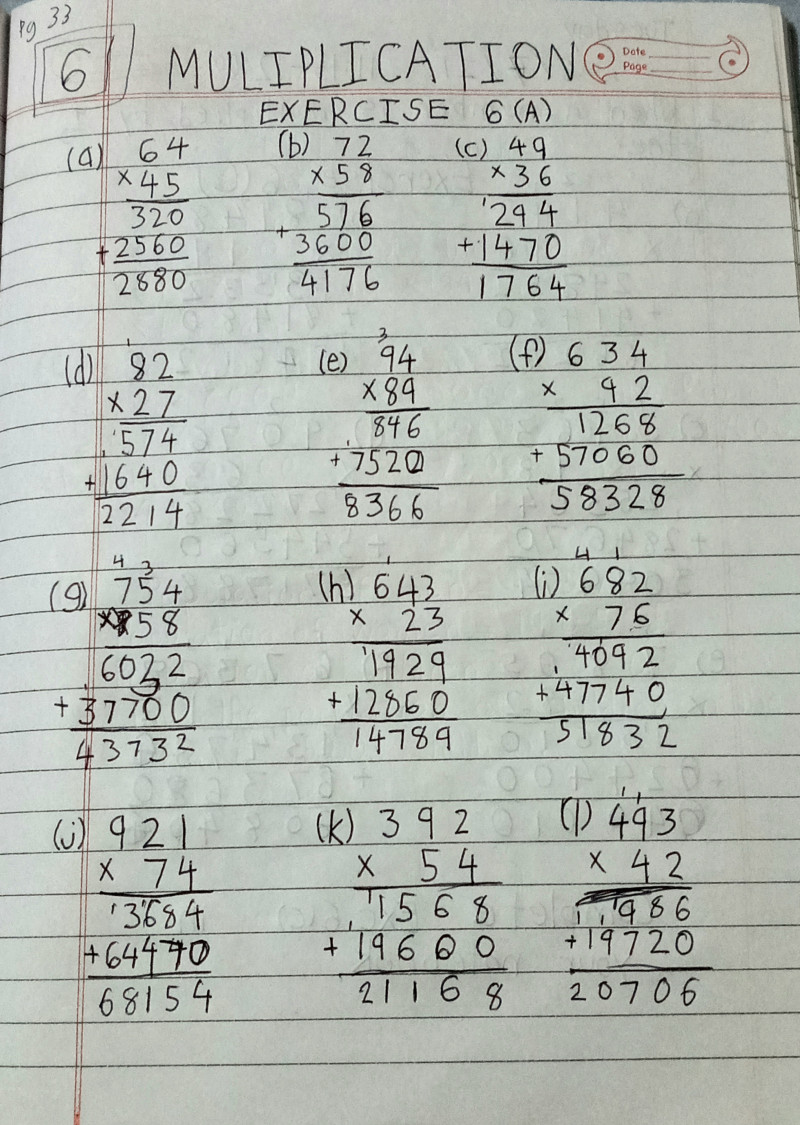 pg 33
6 MULIPLICATION
Date
Page
EXERCISE 6 (A)
(a) 64 (b) 72 (c) 49
×45 ×58 ×36
320 576 294
+2560 +3600 +1470
2880 4176 1764
1 3
(d) 82 (e) 94 (f) 634
×27 ×89 × 92
574 846 1268
+1640 +7520 +57060
2214 8366 58328
4 3 1 4 1
(g) 754 (h) 643 (i) 682
×58 × 23 × 76
6032 1929 4092
+37700 +12860 +47740
43732 14789 51832
1 1
(j) 921 (k) 392 (l) 493
× 74 × 54 × 42
3684 1568 986
+64470 +19600 +19720
68154 21168 20706